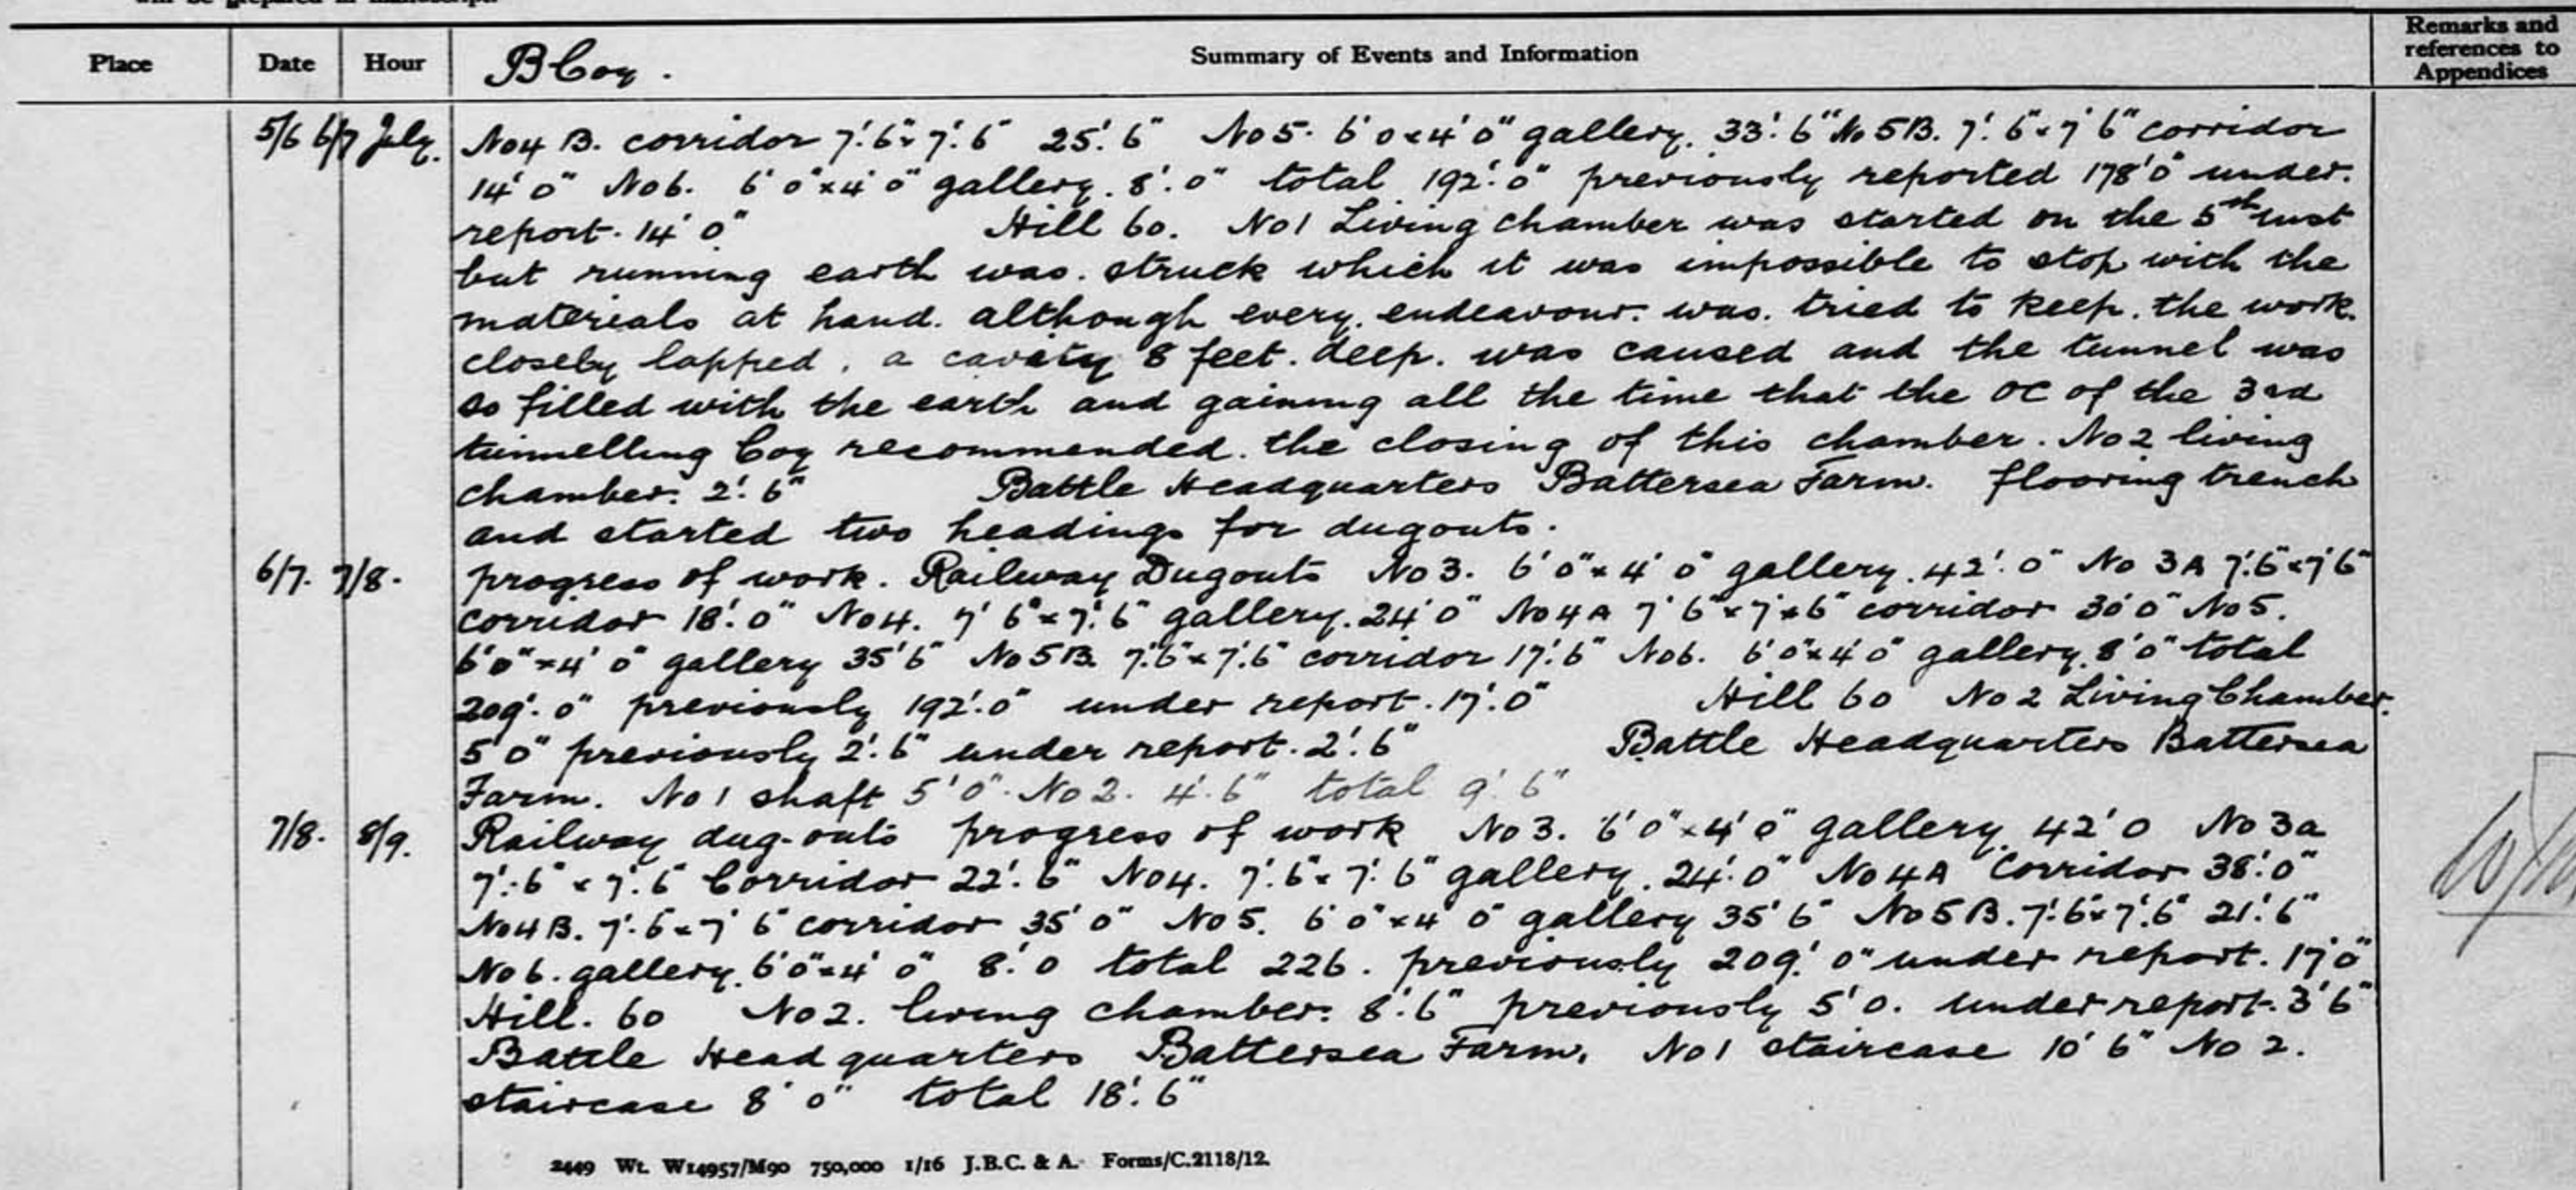 Place Date Hour B Coy. Summary of Events and Information Remarks and references to Appendices
5/6 6/7 July. No 4 B. corridor 7'.6" x 7'.6" 25'.6" No 5. 6'0" x 4'0" gallery. 33'.6" No 5B. 7'.6" x 7'6" corridor
14'0" No 6. 6'0" x 4'0" gallery. 8'.0" total 192'.0" previously reported 178'0" under.
report. 14'0" Hill 60. No 1 Living chamber was started on the 5th inst
but running earth was. struck which it was impossible to stop with the
materials at hand. although every. endeavour. was. tried to keep. the work.
closely lapped. a cavity 8 feet. deep. was caused and the tunnel was
so filled with the earth and gaining all the time that the OC of the 3rd
tunnelling Coy recommended. the closing of this chamber. No 2 living
chamber. 2'.6" Battle Headquarters Battersea Farm. flooring trench
and started two headings for dugouts.
6/7. 7/8. progress of work. Railway Dugouts No 3. 6'0" x 4'0" gallery. 42'.0" No 3A 7'.6" x 7'6"
corridor 18'.0" No 4. 7'6" x 7'.6" gallery. 24'0" No 4A 7'6" x 7'6" corridor 30'0" No 5.
6'0" x 4'0" gallery 35'6" No 5B. 7'.6" x 7'.6" corridor 17'.6" No 6. 6'0" x 4'0" gallery. 8'0" total
209'.0" previously 192'.0" under report. 17'.0" Hill 60 No 2 Living Chamber.
5'0" previously 2'.6" under report. 2'.6" Battle Headquarters Battersea
Farm. No 1 shaft 5'0". No 2. 4'.6" total 9'.6"
7/8. 8/9. Railway dug-outs progress of work No 3. 6'0" x 4'0" gallery. 42'0 No 3a
7'.6" x 7'.6" Corridor 22'.6" No 4. 7'.6" x 7'.6" gallery. 24'.0" No 4A Corridor 38'.0"
No 4 B. 7'.6" x 7'6" corridor 35'0" No 5. 6'0" x 4'0" gallery 35'6" No 5B. 7'.6" x 7'.6" 21'.6"
No 6. gallery. 6'0" x 4'0" 8'.0 total 226. previously 209'.0" under report. 17'0"
Hill. 60 No 2. living chamber. 8'.6" previously 5'0. under report. 3'6"
Battle Headquarters Battersea Farm. No 1 staircase 10'6" No 2.
staircase 8'0" total 18'.6"
2449 Wt. W14957/M90 750,000 1/16 J.B.C. & A. Forms/C.2118/12.